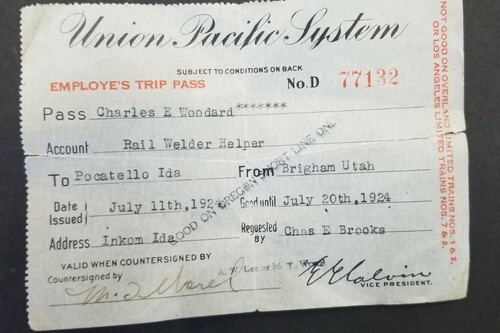 Union Pacific System
SUBJECT TO CONDITIONS ON BACK
EMPLOYE'S TRIP PASS No. D 77132
Pass Charles E Woodard*******
Account Rail Welder Helper
To Pocatello Ida From Brigham Utah
Date Issued July 11th, 1924 Good until July 20th, 1924
Address Inkom Ida Requested By Chas E Brooks
VALID WHEN COUNTERSIGNED BY
Countersigned by
E E Calvin
VICE PRESIDENT.
GOOD ON OREGON SHORT LINE ONLY
NOT GOOD ON OVERLAND LIMITED TRAINS NOS. 1 & 2,
OR LOS ANGELES LIMITED TRAINS NOS. 7 & 8.